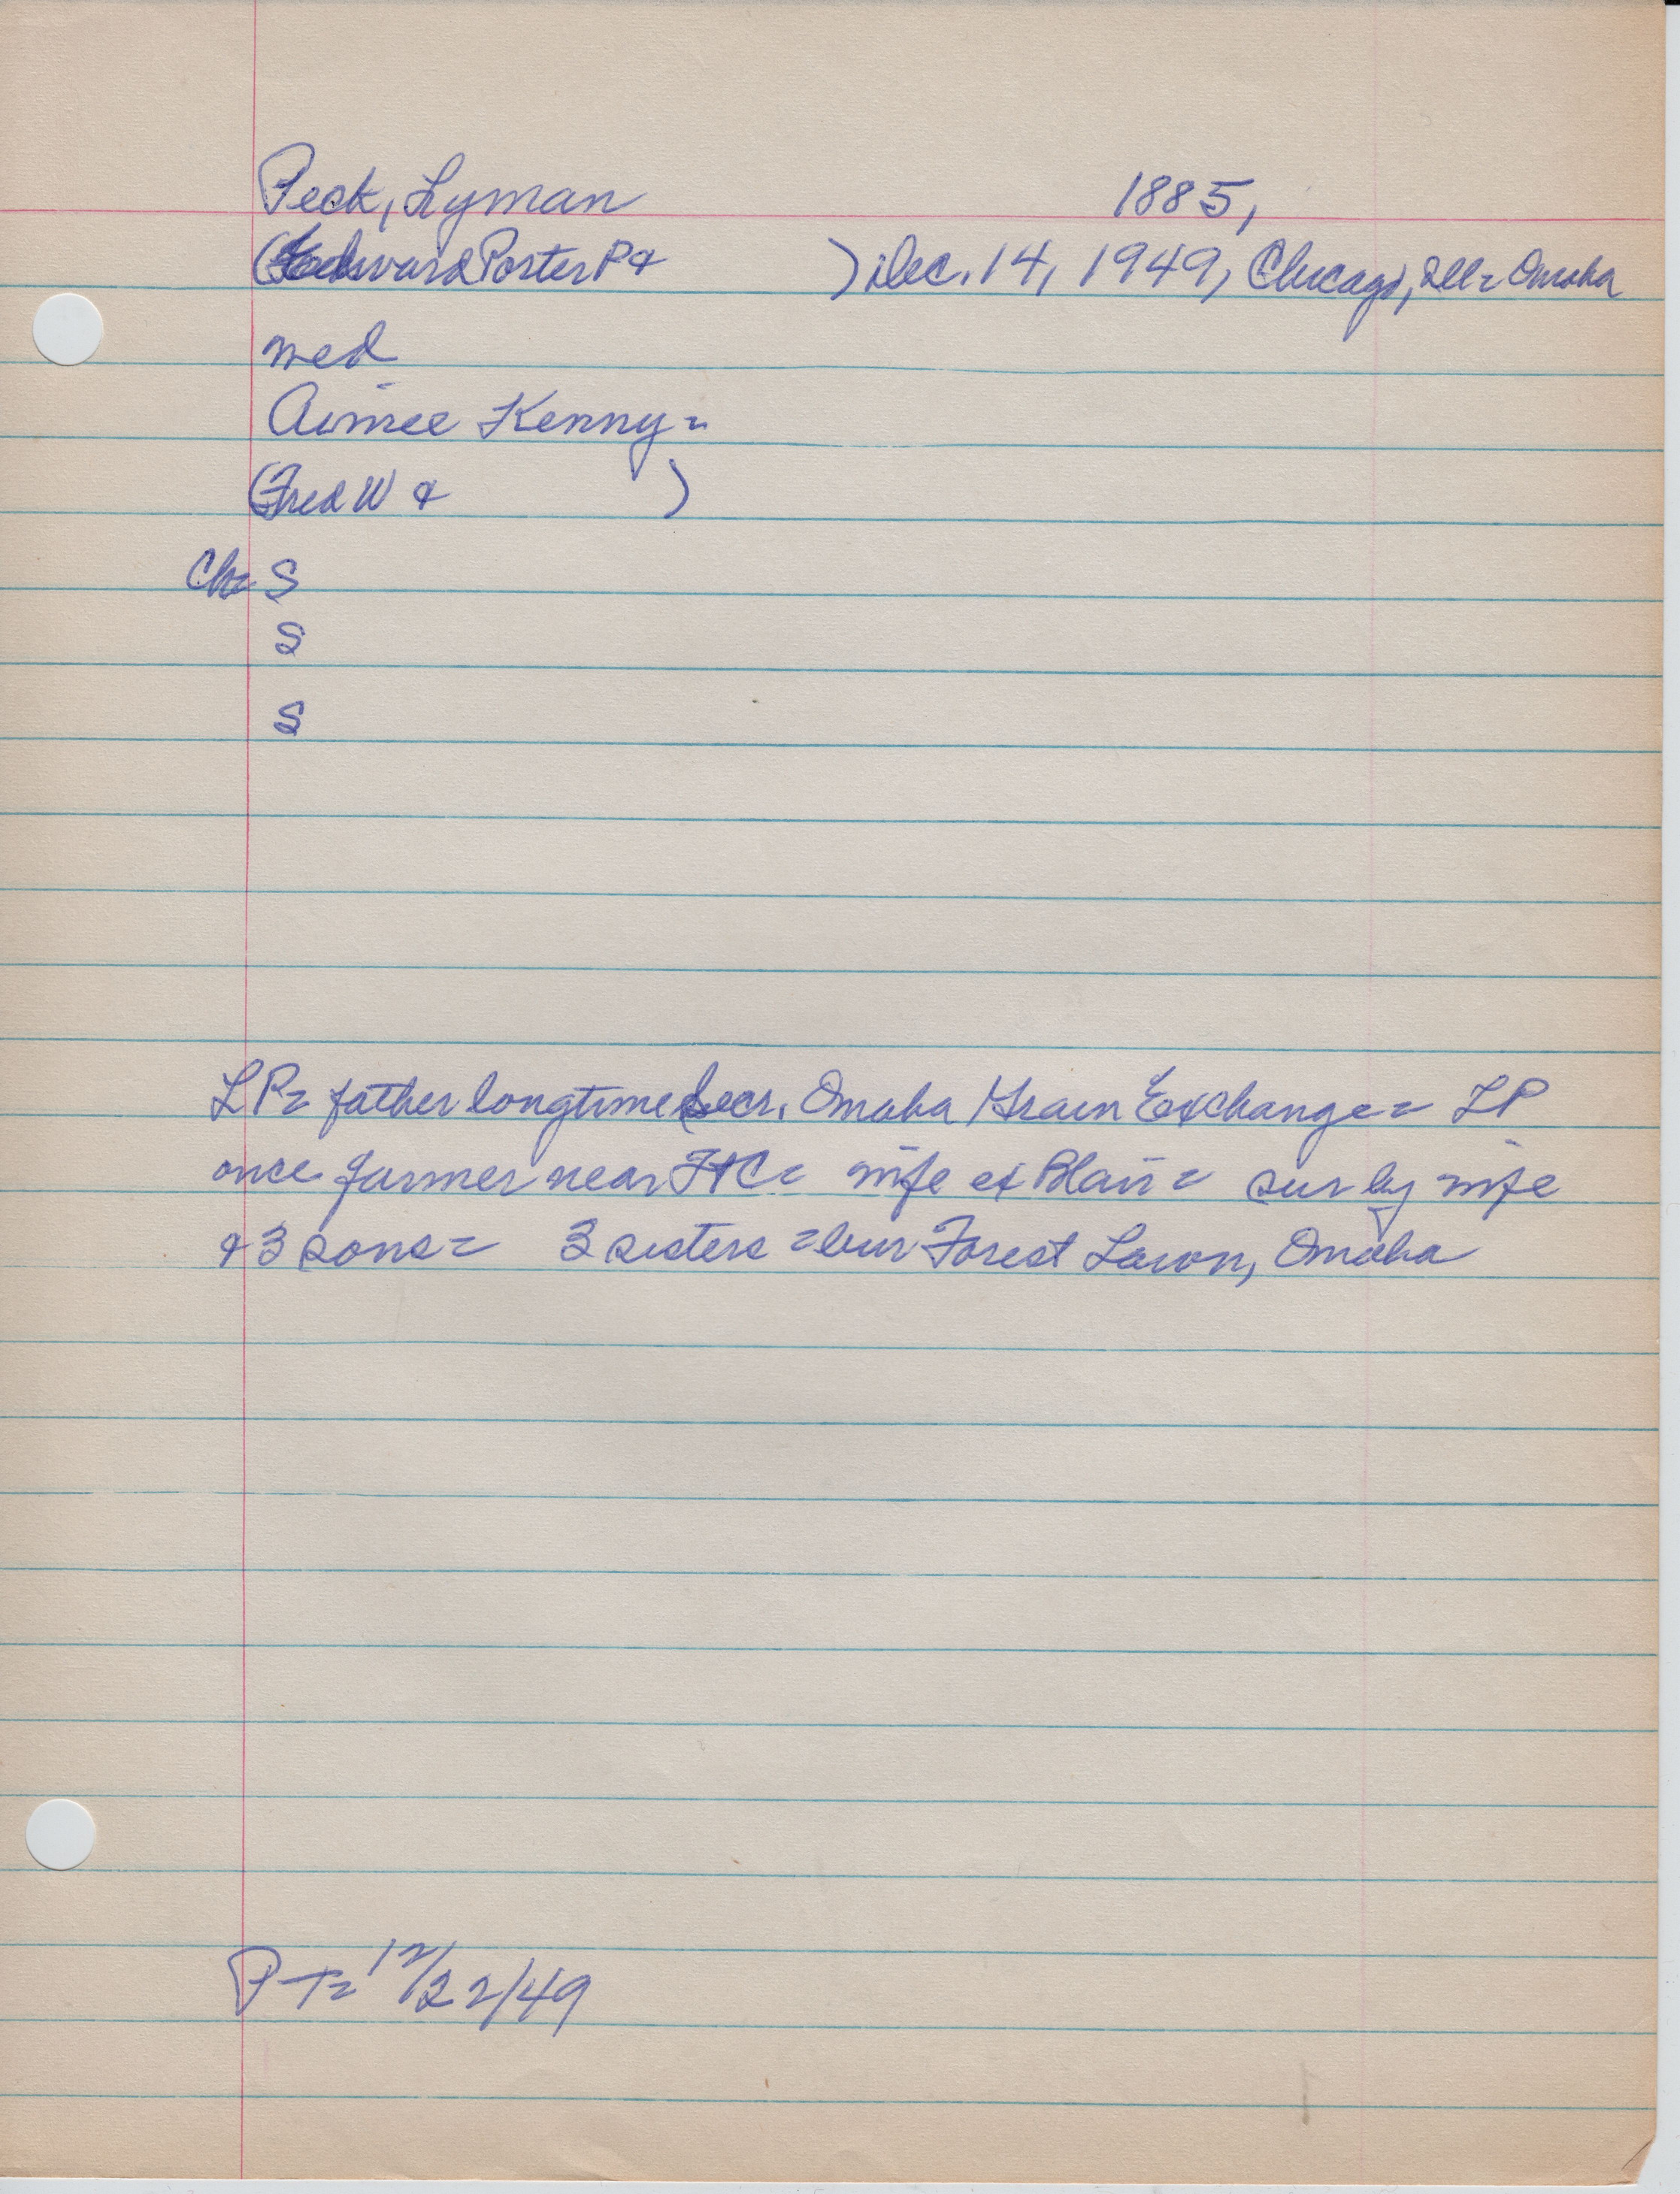 Peck, Lyman 1885,
(Edward Porter P & ) Dec. 14, 1949, Chicago, Ill = Omaha
wed
Aimee Kenny =
(Fred W & )
Ch = S
S
S
LP = father longtime Secr. Omaha Grain Exchange = LP
once farmer near FtC = wife ex Blair = sur by wife
& 3 sons = 3 sisters = bur Forest Lawn, Omaha
PT = 12/22/49